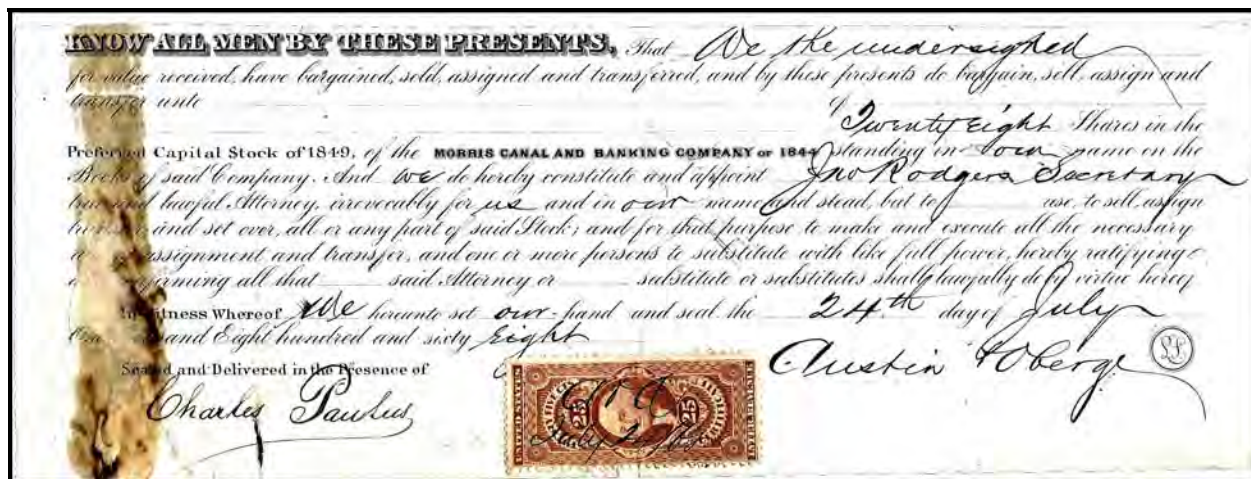 KNOW ALL MEN BY THESE PRESENTS, That We the undersighed
for value received, have bargained, sold, assigned and transferred, and by these presents do bargain, sell, assign and
transfer unto
of
Twenty Eight Shares in the
Preferred Capital Stock of 1849, of the MORRIS CANAL AND BANKING COMPANY OF 1844 standing in our name on the
Books of said Company. And We do hereby constitute and appoint Jno Rodgers Secretary
true and lawful Attorney, irrevocably for us and in our name and stead, but to use, to sell, assign
and set over, all or any part of said Stock; and for that purpose to make and execute all the necessary
assignment and transfer, and one or more persons to substitute with like full power, hereby ratifying
all that said Attorney or substitute or substitutes shall lawfully do by virtue hereof
In Witness Whereof We hereunto set our hand and seal the 24th day of July
One and Eight hundred and sixty Eight
Sealed and Delivered in the Presence of
Austin Oberge
L.S.
Charles Paulus
UNITED STATES
25
25
INTER. REVENUE